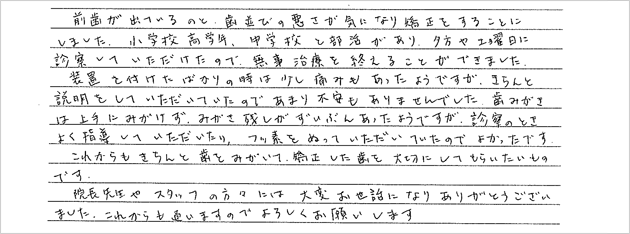 前歯が出ているのと、歯並びの悪さが気になり矯正をすることに
しました。小学校高学年、中学校と部活があり、夕方や土曜日に
診察していただけたので、無事治療を終えることができました。
装置を付けたばかりの時は少し痛みもあったようですが、きちんと
説明をしていただいていたのであまり不安もありませんでした。歯みがき
は上手にみがけず、みがき残しがずいぶんあったようですが、診察のとき
よく指導していただいたり、フッ素をぬっていただいていたのでよかったです。
これからもきちんと歯をみがいて、矯正した歯を大切にしてもらいたいもの
です。
院長先生やスタッフの方々には大変お世話になりありがとうござい
ました。これからも通いますのでよろしくお願いします